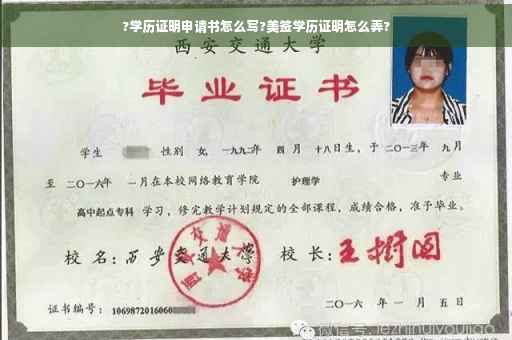 ?学历证明申请书怎么写?美签学历证明怎么弄?
西安交通大学
毕业证书
学生 性别 女, 一九九二年 四 月 十八日生, 于 二〇一三年 九月
至 二〇一六年 一月在本校网络教育学院 护理学 专业
高中起点专科 学习, 修完教学计划规定的全部课程, 成绩合格, 准予毕业。
校 名: 西安交通大学 校 长: 王树国
西安交通大学
证书编号: 1069872016060 二〇一六 年 一 月 五 日
微信号: lezhinuiyoujiao